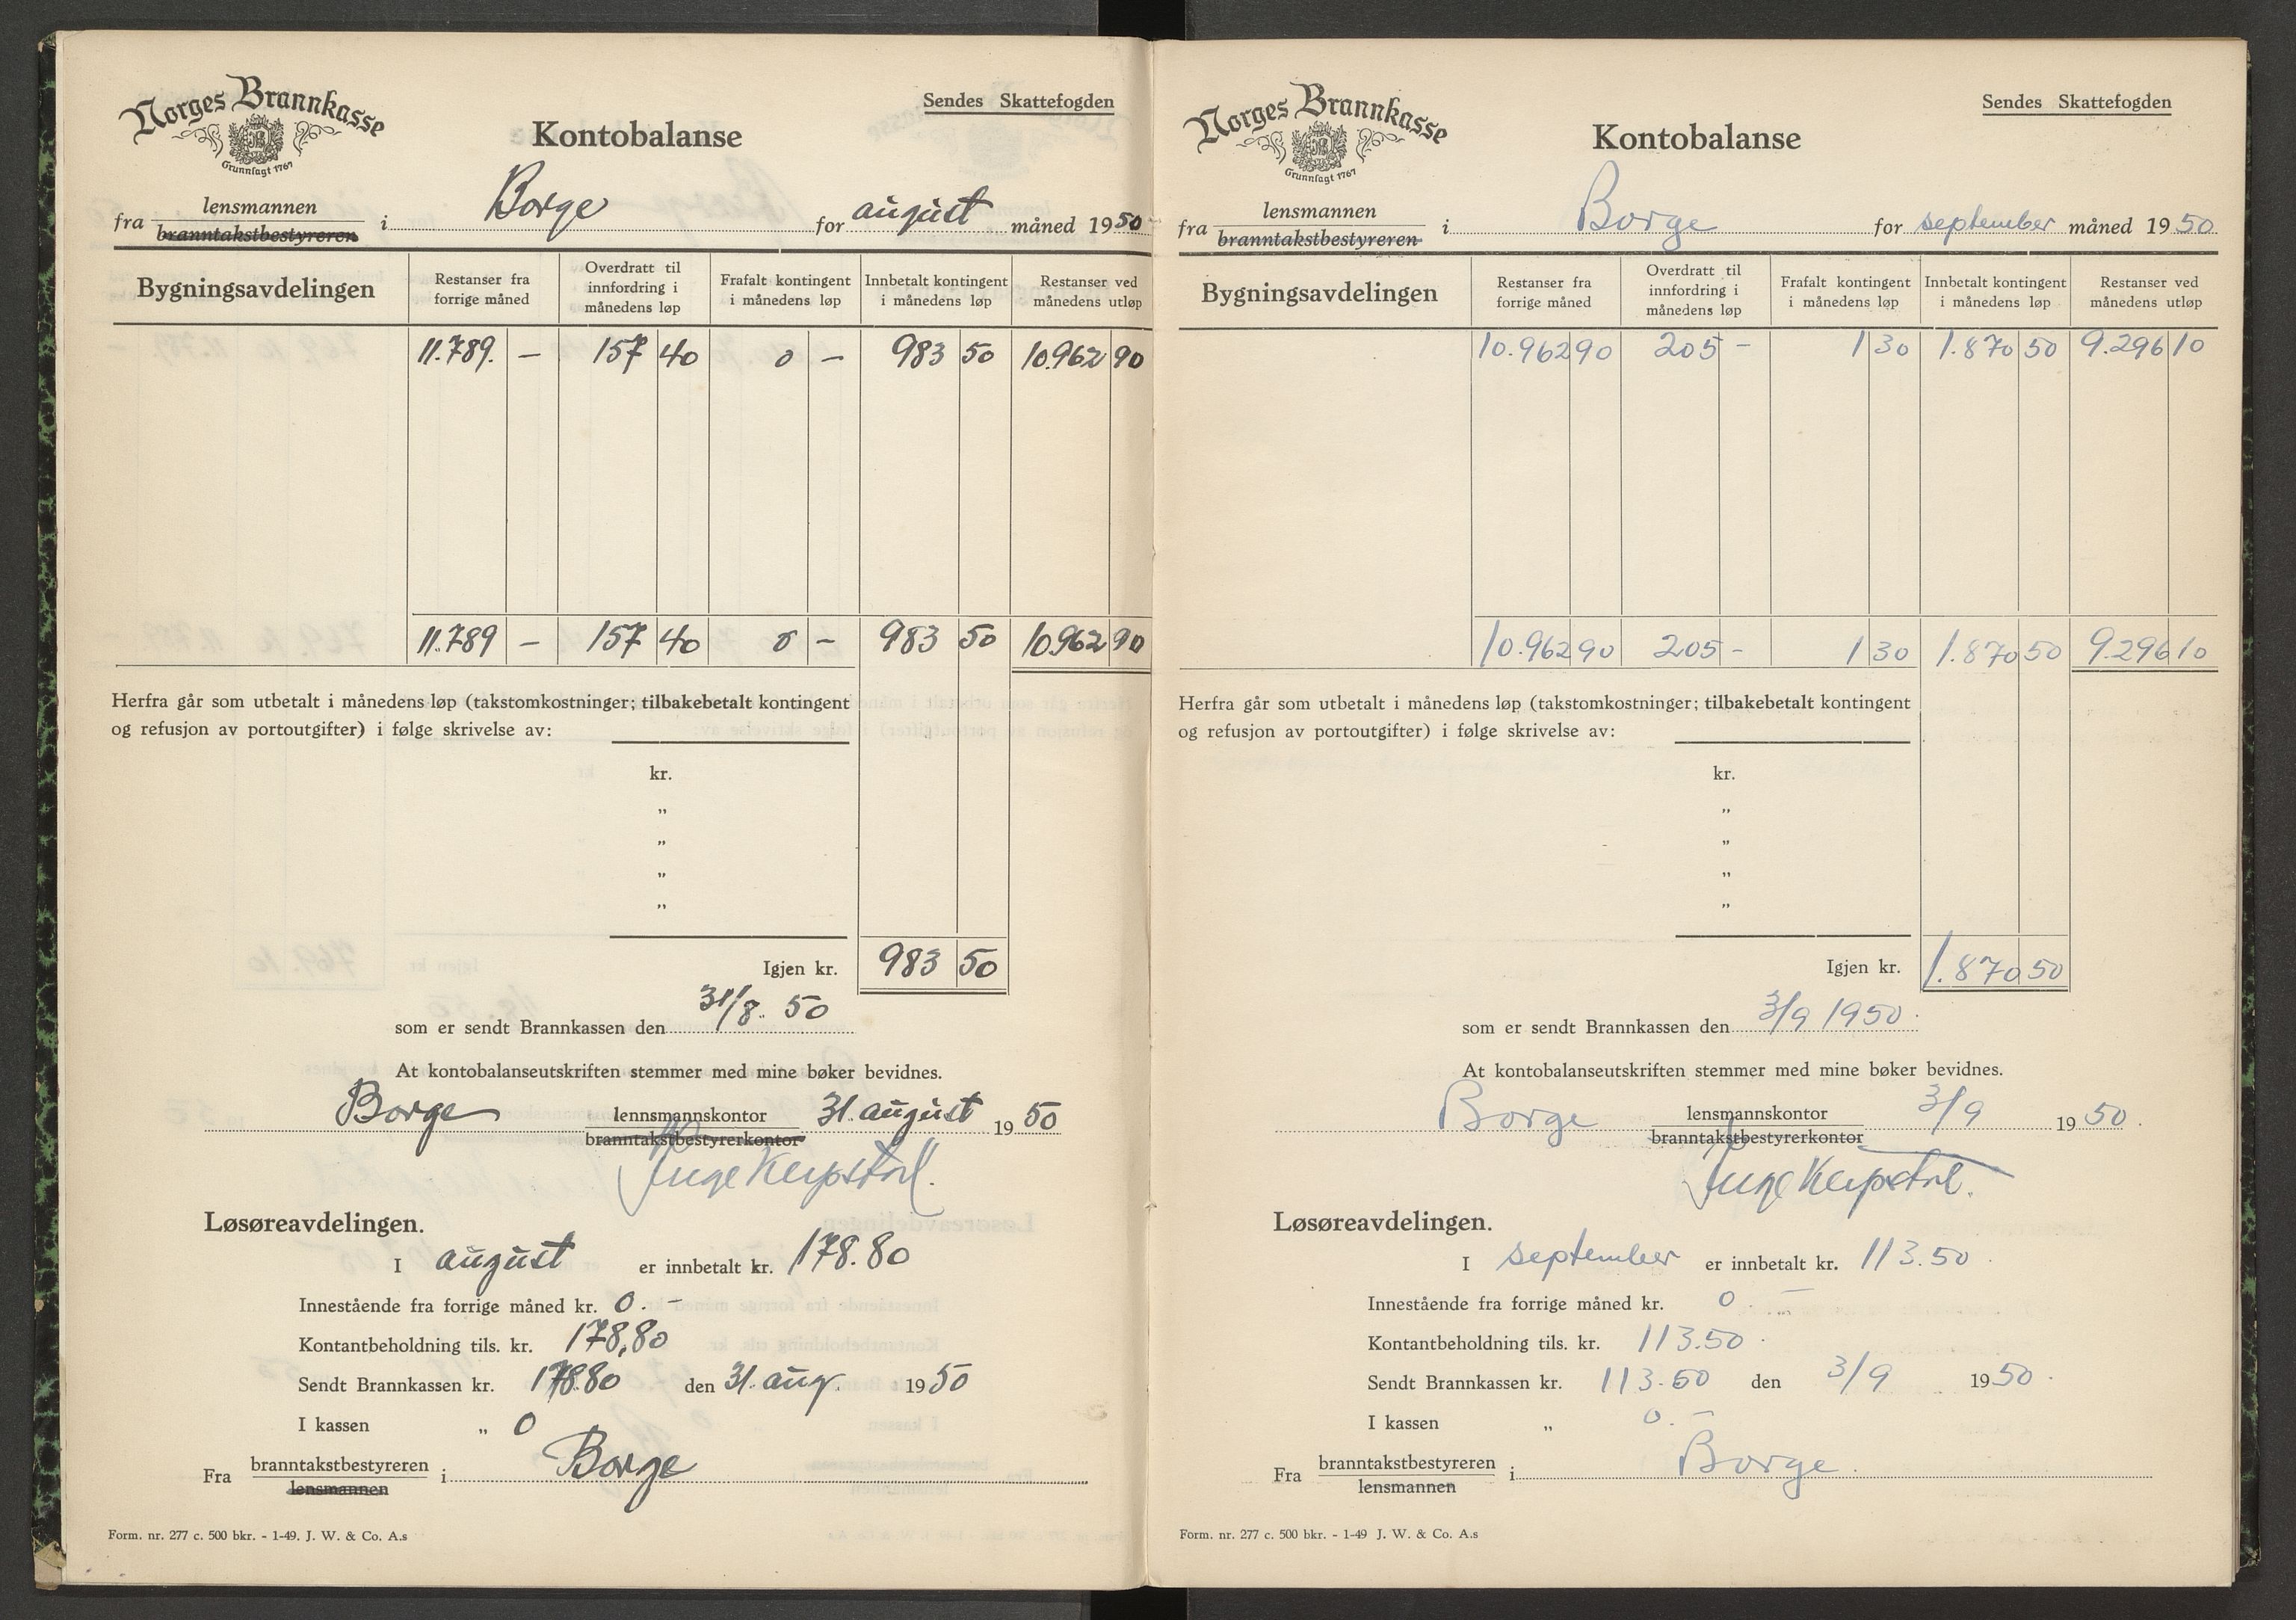 Norges Brannkasse
Grunnlagt 1767
Sendes Skattefogden
Kontobalanse
fra lensmannen i Borge for august måned 1950
branntakstbestyreren
Bygningsavdelingen
Restanser fra forrige måned
Overdratt til innfordring i månedens løp
Frafalt kontingent i månedens løp
Innbetalt kontingent i månedens løp
Restanser ved månedens utløp
11.789. – 157 40 0 – 983 50 10.962 90
11.789 – 157 40 0 – 983 50 10.962 90
Herfra går som utbetalt i månedens løp (takstomkostninger; tilbakebetalt kontingent
og refusjon av portoutgifter) i følge skrivelse av:
kr.
„
„
„
„
Igjen kr. 983 50
som er sendt Brannkassen den 31/8. 50
At kontobalanseutskriften stemmer med mine bøker bevidnes.
Borge lennsmannskontor 31. august 1950
branntakstbestyrerkontor
Løsøreavdelingen.
I august er innbetalt kr. 178.80
Innestående fra forrige måned kr. 0. –
Kontantbeholdning tils. kr. 178,80
Sendt Brannkassen kr. 178.80 den 31. aug. 1950
I kassen „ 0
Fra branntakstbestyreren i Borge
lensmannen
Form. nr. 277 c. 500 bkr. - 1-49. J. W. & Co. A.s
Norges Brannkasse
Grunnlagt 1767
Sendes Skattefogden
Kontobalanse
fra lensmannen i Borge for september måned 1950
branntakstbestyreren
Bygningsavdelingen
Restanser fra forrige måned
Overdratt til innfordring i månedens løp
Frafalt kontingent i månedens løp
Innbetalt kontingent i månedens løp
Restanser ved månedens utløp
10.962 90 205 – 1 30 1.870 50 9.296 10
10.962 90 205 – 1 30 1.870 50 9.296 10
Herfra går som utbetalt i månedens løp (takstomkostninger; tilbakebetalt kontingent
og refusjon av portoutgifter) i følge skrivelse av:
kr.
„
„
„
„
Igjen kr. 1.870 50
som er sendt Brannkassen den 3/9 1950.
At kontobalanseutskriften stemmer med mine bøker bevidnes.
Borge lensmannskontor 3/9 1950.
branntakstbestyrerkontor
Løsøreavdelingen.
I september er innbetalt kr. 113.50
Innestående fra forrige måned kr. 0. –
Kontantbeholdning tils. kr. 113.50
Sendt Brannkassen kr. 113.50 den 3/9 1950.
I kassen „ 0. –
Fra branntakstbestyreren i Borge.
lensmannen
Form. nr. 277 c. 500 bkr. - 1-49 J. W. & Co. A.s